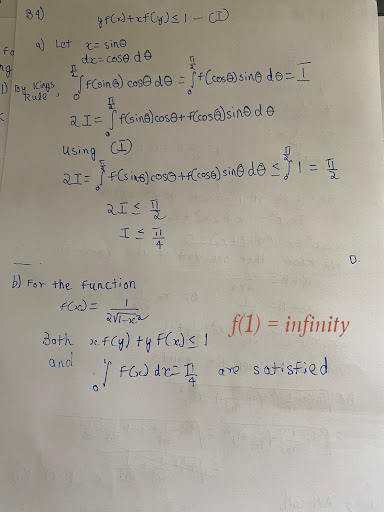 B4) yf(x)+xf(y) ≤ 1 — (I)
a) Let x = sinθ
dx = cosθ dθ
By Kings Rule, ∫₀^{π/2} f(sinθ) cosθ dθ = ∫₀^{π/2} f(cosθ) sinθ dθ = I
2I = ∫₀^{π/2} f(sinθ) cosθ + f(cosθ) sinθ dθ
using (I)
2I = ∫₀^{π/2} f(sinθ) cosθ + f(cosθ) sinθ dθ ≤ ∫₀^{π/2} 1 = π/2
2I ≤ π/2
I ≤ π/4
D.
b) For the function
f(x) = 1/(2√(1-x²))
f(1) = infinity
Both xf(y) + yf(x) ≤ 1
and ∫₀¹ f(x) dx = π/4 are satisfied